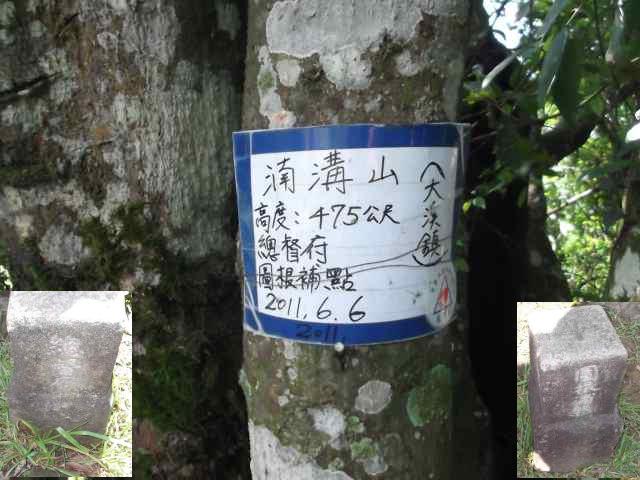 湳溝山
(大溪鎮)
高度：475公尺
總督府
圖根補點
2011.6.6
2011